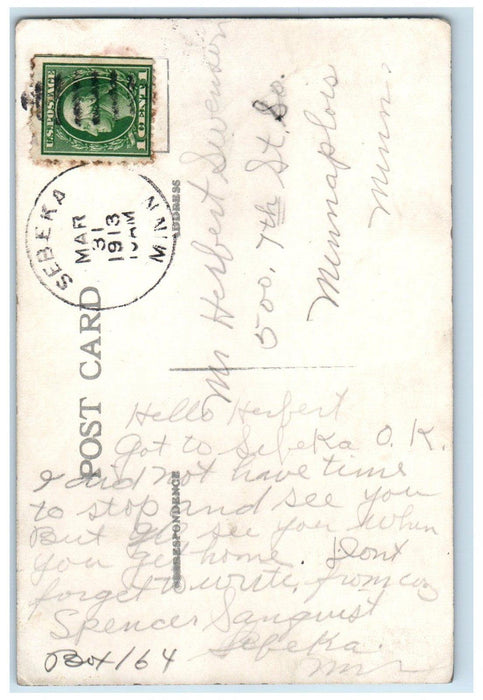 U.S. POSTAGE
1 CENT 1
SEBEKA
MAR
31
1913
10AM
MINN
POST CARD
ADDRESS
CORRESPONDENCE
Mr Herbert Swenson
500. 7th St. So.
Minnaplois
Minn.
Hello Herbert
Got to Sebeka O. K.
I did not have time
to stop and see you
But see you when
you get home. Dont
forget to write, from
Spencer Sanquist
Sebeka
Box 164